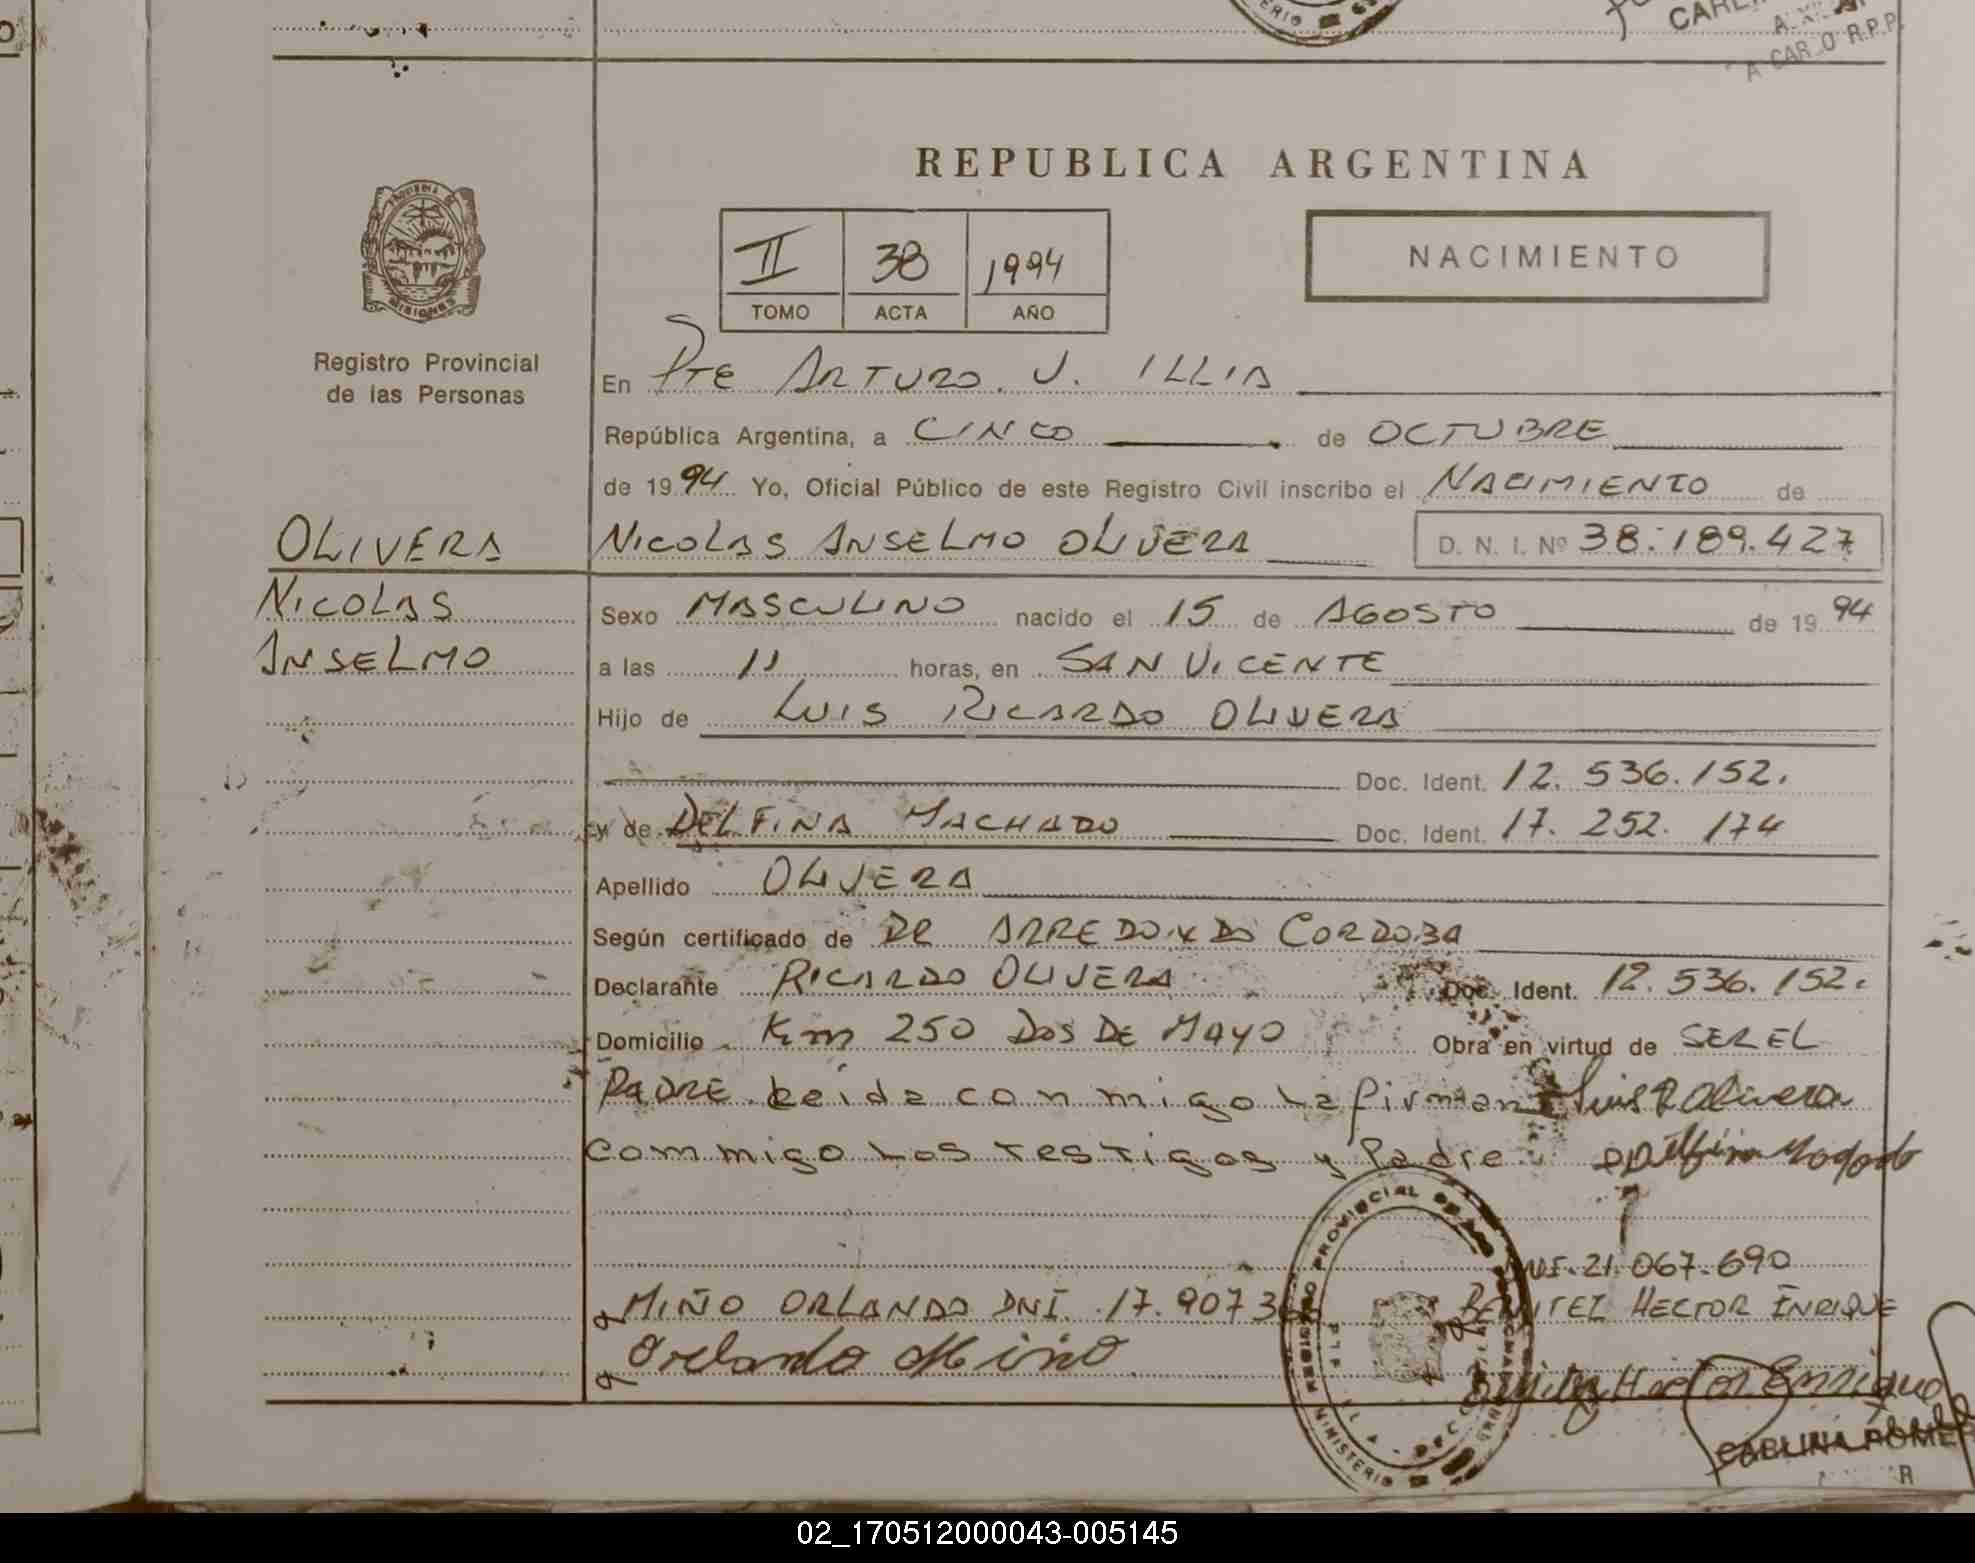 A CARGO R.P.P.
REPUBLICA ARGENTINA
II 38 1994
TOMO ACTA AÑO
NACIMIENTO
Registro Provincial
de las Personas
En Pte ARTURO. U. ILLIA
República Argentina, a CINCO de OCTUBRE
de 1994 Yo, Oficial Público de este Registro Civil inscribo el NACIMIENTO de
OLIVERA
NICOLAS ANSELMO OLIVERA D. N. I. Nº 38.189.427
NICOLAS
ANSELMO
Sexo MASCULINO nacido el 15 de AGOSTO de 1994
a las 11 horas, en SAN VICENTE
Hijo de LUIS RICARDO OLIVERA
Doc. Ident. 12.536.152.
y de DELFINA MACHADO Doc. Ident. 17.252.174
Apellido OLIVERA
Según certificado de DR ARREDONDO CORDOBA
Declarante RICARDO OLIVERA Doc. Ident. 12.536.152.
Domicilio Km 250 DOS DE MAYO Obra en virtud de SER EL
PADRE Leida con migo La firman Luis R Olivera
commigo Los testigos y Padre.
DNI. 21.067.690
MIÑO ORLANDO DNI. 17.9073 BENITEZ HECTOR ENRIQUE
Orlando Miño
Benitez Hector Enrique
REGISTRO PROVINCIAL DE
MINISTERIO
02_170512000043-005145